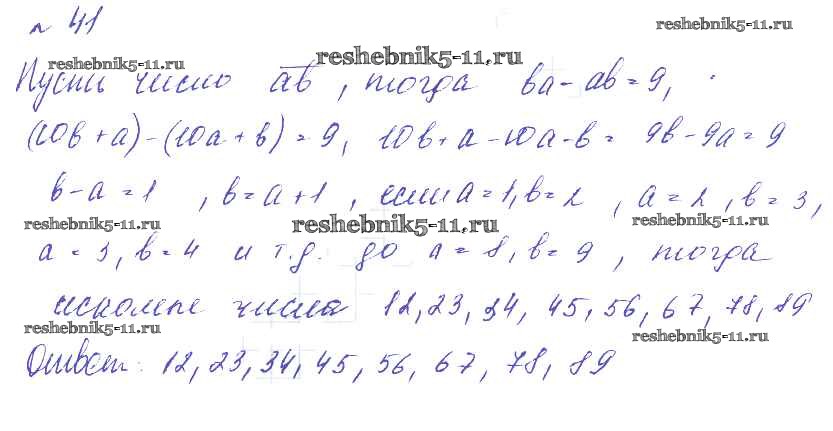 № 41
reshebnik5-11.ru
reshebnik5-11.ru
reshebnik5-11.ru
Пусть число ab, тогда ва - ав = 9,
(10в + а) - (10а + в) = 9, 10в + а - 10а - в = 9в - 9а = 9
в - а = 1, в = а + 1, если а = 1, в = 2, а = 2, в = 3,
reshebnik5-11.ru
reshebnik5-11.ru
reshebnik5-11.ru
а = 3, в = 4 и т.д. до а = 8, в = 9, тогда
искомые числа 12, 23, 34, 45, 56, 67, 78, 89
reshebnik5-11.ru
reshebnik5-11.ru
Ответ: 12, 23, 34, 45, 56, 67, 78, 89